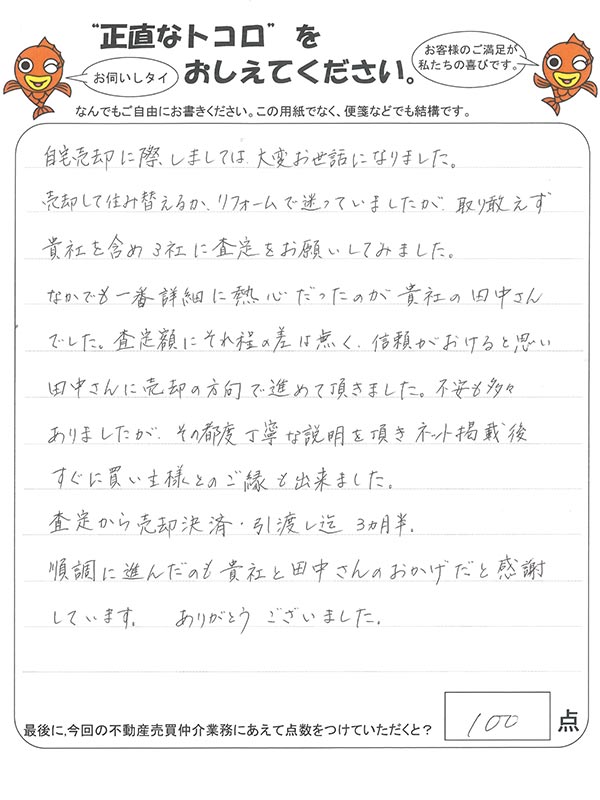 "正直なトコロ"を
おしえてください。
お伺いしタイ
お客様のご満足が
私たちの喜びです。
なんでもご自由にお書きください。この用紙でなく、便箋などでも結構です。
自宅売却に際しましては、大変お世話になりました。
売却して住み替えるか、リフォームで迷っていましたが、取り敢えず
貴社を含め3社に査定をお願いしてみました。
なかでも一番詳細に熱心だったのが貴社の田中さん
でした。査定額にそれ程の差は無く、信頼がおけると思い
田中さんに売却の方向で進めて頂きました。不安も多々
ありましたが、その都度丁寧な説明を頂きネット掲載後
すぐに買い主様とのご縁も出来ました。
査定から売却決済・引渡し迄 3ヵ月半。
順調に進んだのも貴社と田中さんのおかげだと感謝
しています。 ありがとうございました。
最後に、今回の不動産売買仲介業務にあえて点数をつけていただくと? 100 点